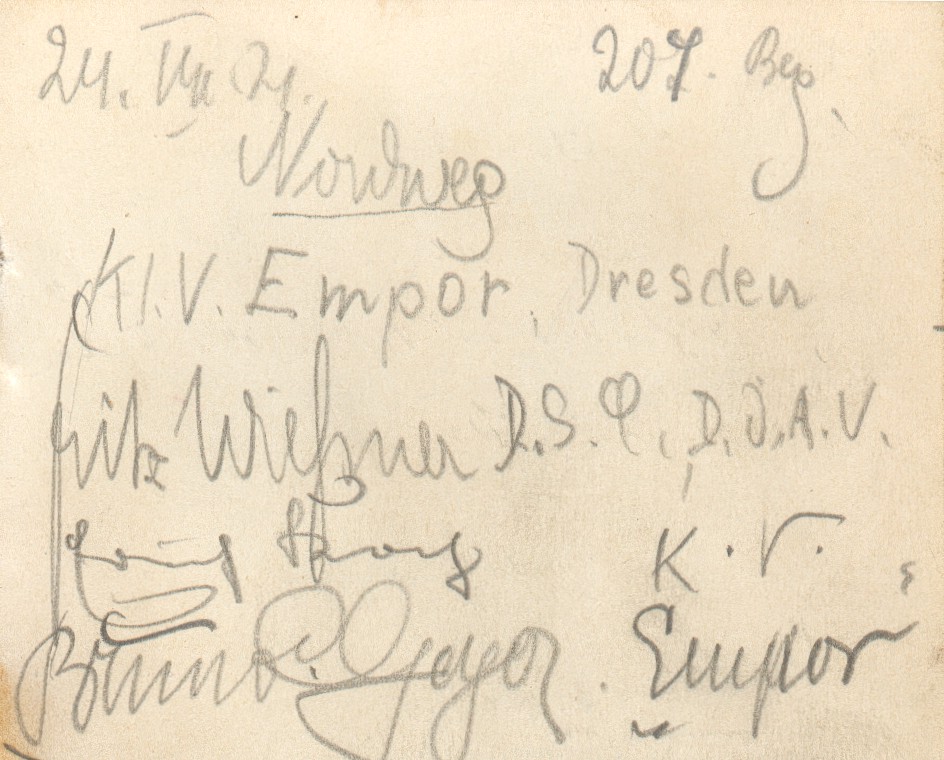 24. VII 21. 207. Beg.
Nordweg
Kl.V. Empor, Dresden
Fritz Wießner D.S. D.Ö.A.V.
K.V.
Bruno Geyer. Empor